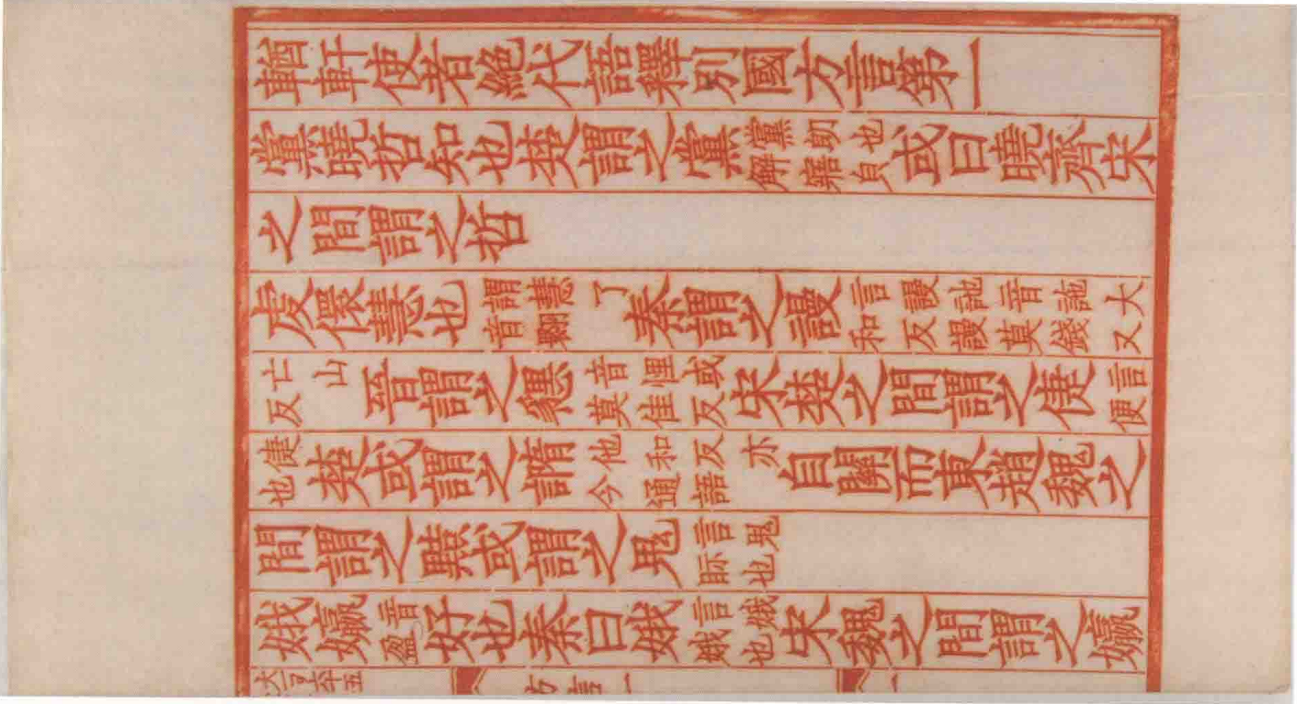 輶軒使者絕代語釋別國方言第一
黨曉哲知也楚謂之黨黨朗也解寤皃或曰曉齊宋
之間謂之哲
虔儇慧也謂慧了音翾秦謂之謾言謾訑音訑大和反謾莫錢又
亡山反晉謂之㦟音悝或莫佳反宋楚之間謂之倢言便
倢也楚或謂之䜏他和反亦今通語自關而東趙魏之
間謂之黠或謂之鬼言鬼眎也
娥㜲音盈好也秦曰娥言娥娥也宋魏之間謂之㜲
方言一